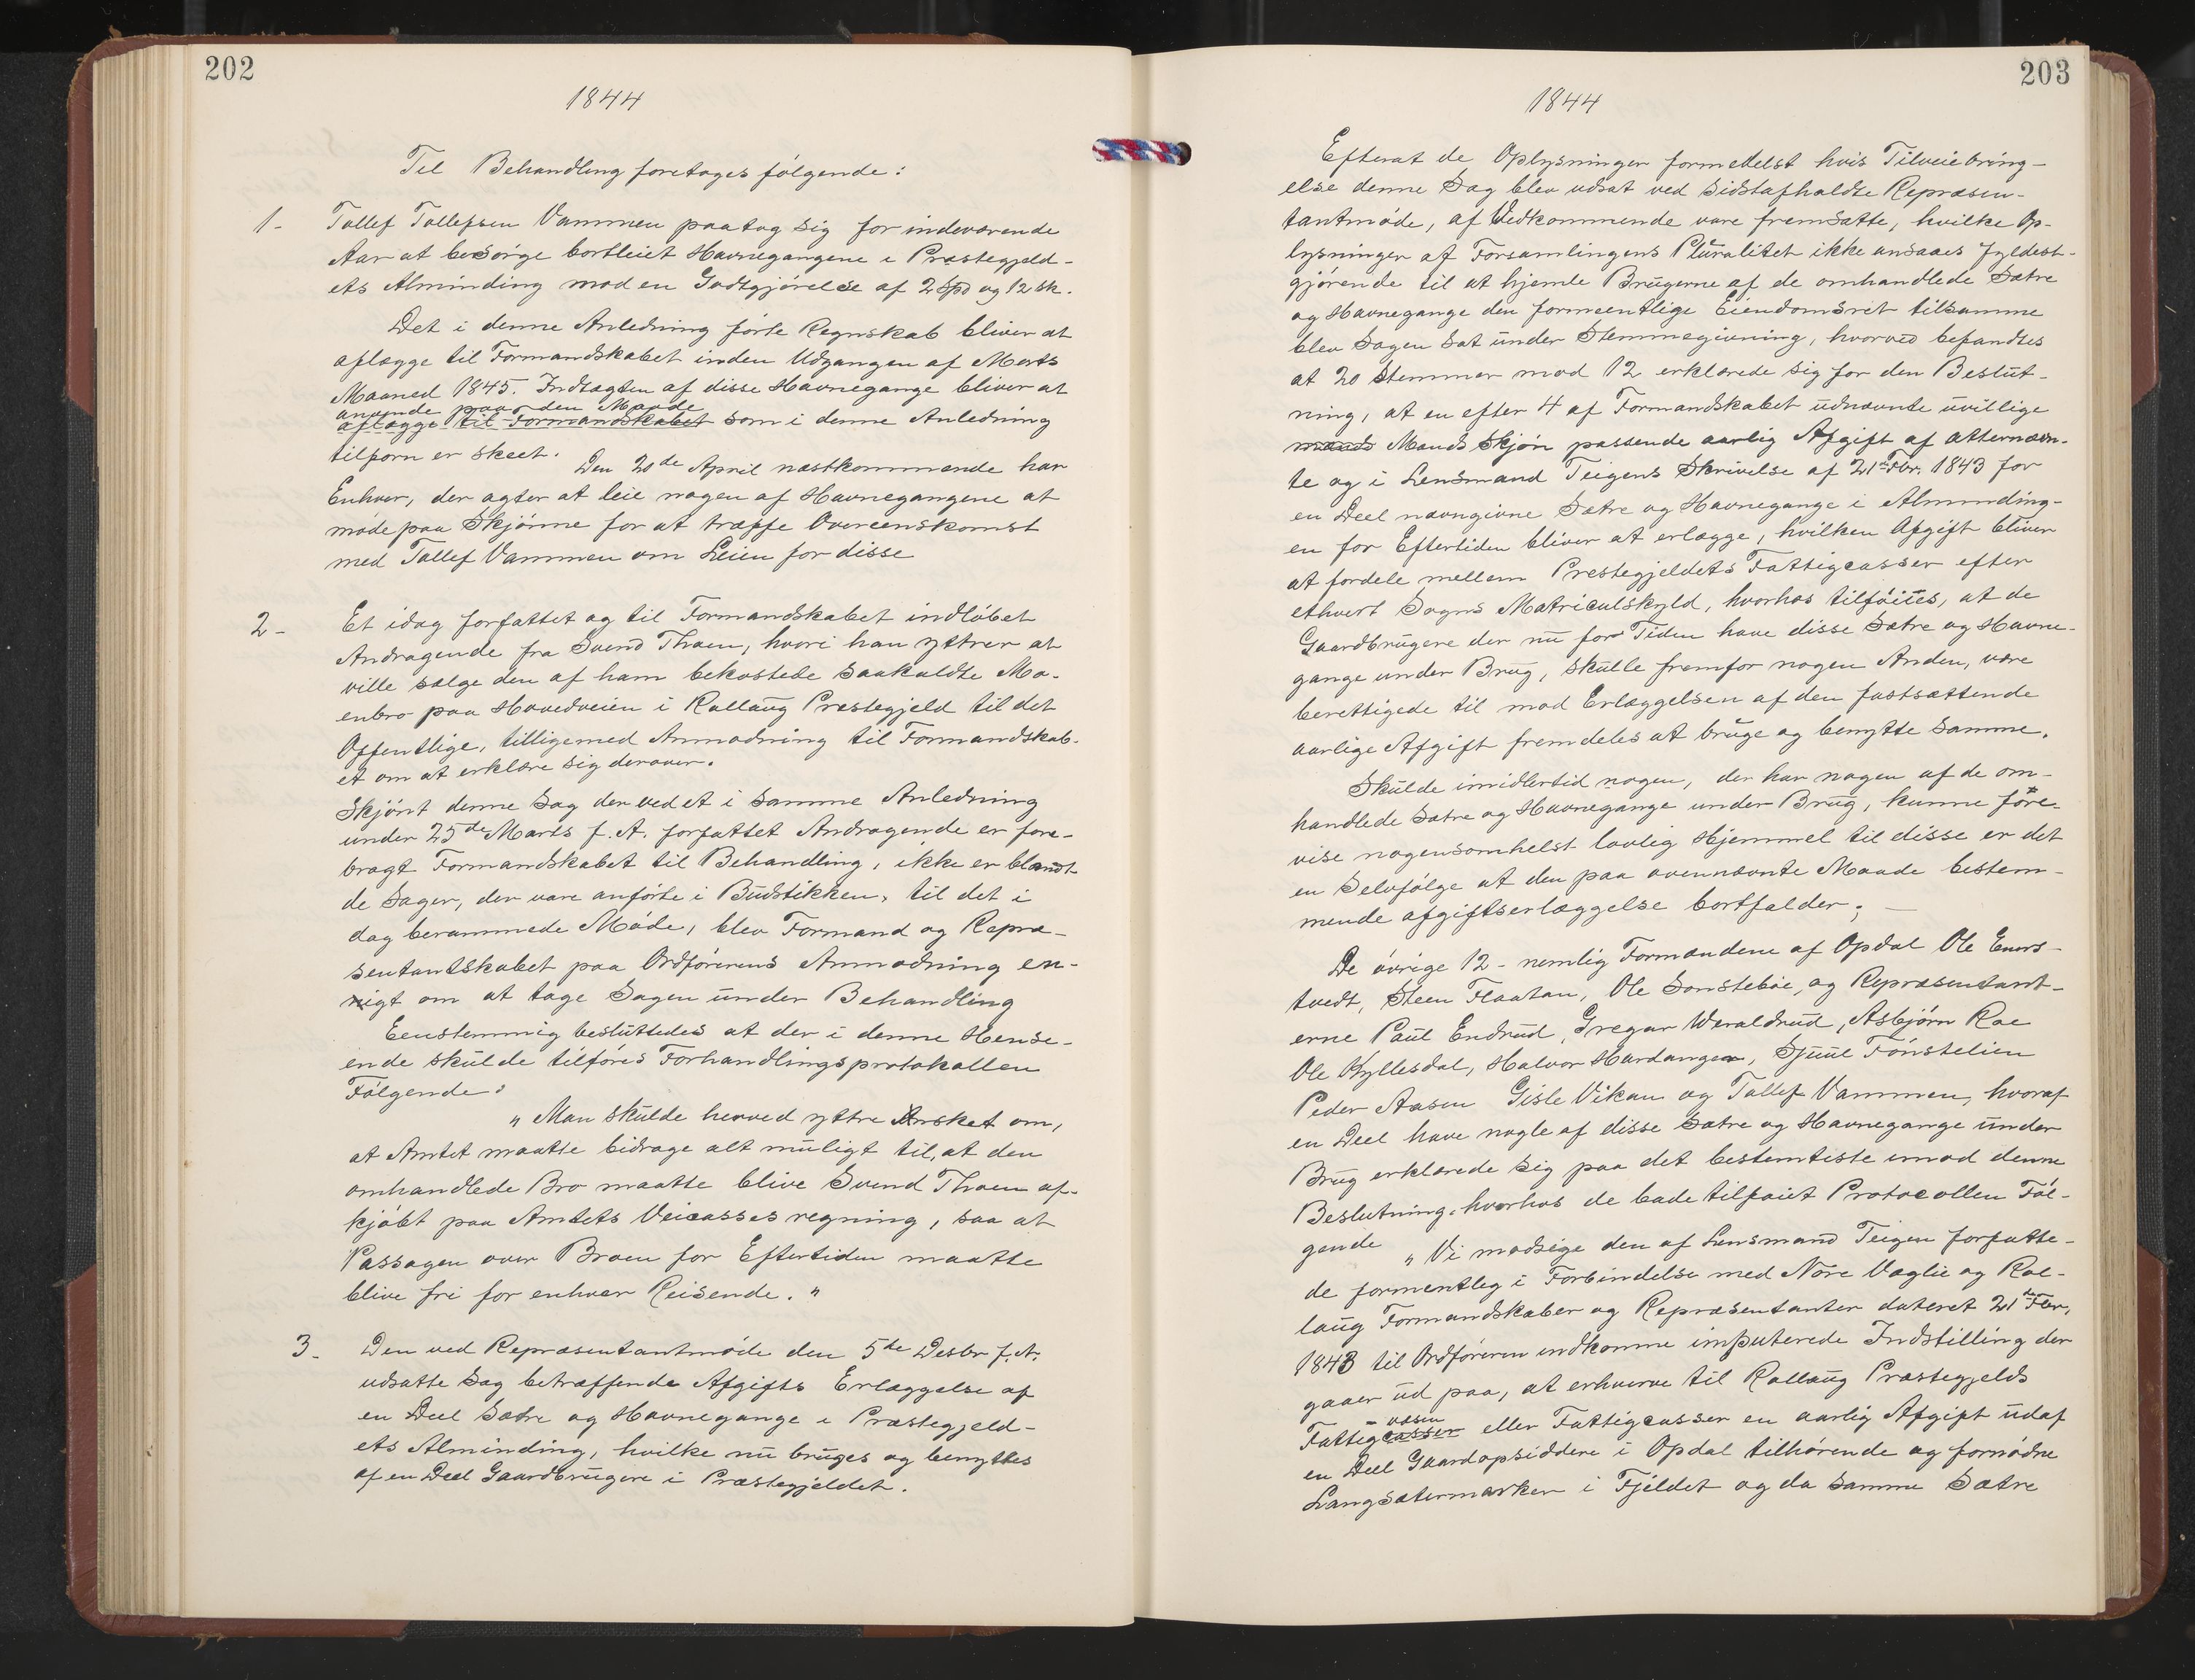 202
1844
Til Behandling foretoges følgende:
1- Tollef Tollefsen Vammen paatog sig for indeværende
Aar at besørge bortleiet Havnegangene i Præstegjeld-
ets Alminding mod en Godtgjørelse af 2 Spd og 12 sk.
Det i denne Anledning førte Regnskab bliver at
aflægge til Formandskabet inden Udgangen af Marts
Maaned 1845. Indtægten af disse Havnegange bliver at
anvende paa den Maade
aflægge til Formandskabet som i denne Anledning
tilforn er skeet.
Den 20de April næstkommende har
Enhver, der agter at leie nogen af Havnegangene at
møde paa Skjønne for at træffe Overeenskomst
med Tollef Vammen om Leien for disse
2- Et idag forfattet og til Formandskabet indløbet
Andragende fra Svend Thoen, hvori han yttrer at
ville sælge den af ham bekostede saakaldte Mo-
enbro paa Hovedveien i Rollaug Præstegjeld til det
Offentlige, tilligemed Anmodning til Formandskab-
et om at erklære sig derover.
Skjønt denne Sag der ved et i samme Anledning
under 25de Marts f.A. forfattet Andragende er fore-
bragt Formandskabet til Behandling, ikke er blandt
de Sager, der vare anførte i Budstikken, til det i
dag berammede Møde, blev Formand og Repræ-
sentantskabet paa Ordførerens Anmodning en-
nigt om at tage Sagen under Behandling
Eenstemmig besluttedes at der i denne Hense-
ende skulde tilføres Forhandlingsprotokollen
Følgende:
" Man skulde herved yttre Ønsket om,
at Amtet maatte bidrage alt muligt til, at den
omhandlede Bro maatte blive Svend Thoen af-
kjøbt paa Amtets Veicasses regning, saa at
Passagen over Broen for Eftertiden maatte
blive fri for enhver Reisende. "
3- Den ved Repræsentantmøde den 5te Desbr f.A.
udsatte Sag betræffende Afgifts Erlæggelse af
en Deel Sætre og Havnegange i Præstegjeld-
ets Alminding, hvilke nu bruges og benyttes
af en Deel Gaardbrugere i Præstegjeldet.
203
1844
Efterat de Oplysninger formedelst hvis Tilveiebring-
else denne Sag blev udsat ved sidstafholdte Repræsen-
tantmøde, af Vedkommende vare fremsatte, hvilke Op-
lysninger af Forsamlingens Pluralitet ikke ansaaes fyldest-
gjørende til at hjemle Brugerne af de omhandlede Sætre
og Havnegange den formeentlige Eiendomsret tilsamme
blev Sagen sat under Stemmegivning, hvorved befandtes
at 20 Stemmer mod 12 erklærede sig for den Beslut-
ning, at en efter 4 af Formandskabet udnævnte uvillige
mænds Mænds Skjøn passende aarlig Afgift af atternævn-
te og i Lensmand Teigens Skrivelse af 21de Fbr. 1843 for
en Deel navngivne Sætre og Havnegange i Alminding-
en for Eftertiden bliver at erlægge, hvilken Afgift bliver
at fordele mellem Prestegjeldets Fattigcasser efter
ethvert Sogns Matriculskyld, hvorhos tilføiies, at de
Gaardbrugere der nu for Tiden have disse Sætre og Havne-
gange under Brug, skulle fremfor nogen Anden, være
berettigede til mod Erlæggelsen af den fastsættende
aarlige Afgift fremdeles at bruge og benytte samme.
Skulde imidlertid nogen, der har nogen af de om-
handlede Sætre og Havnegange under Brug, kunne føre
vise nogensomhelst lovlig Hjemmel til disse er det
en Selvfølge at den paa ovennævnte Maade bestem-
mende afgiftserlæggelse bortfalder; —
De øvrige 12 - nemlig Formændene af Opdal Ole Eners-
tvedt, Steen Flaatan, Ole Sønstebøe, og Repræsentant-
erne Paul Endrud, Gregar Weraldrud, Asbjørn Roe
Ole Kyllesdal, Halvor Hardanger, Sjuul Fønstelien
Peder Aasen Gisle Vikan og Tollef Vammen, hvoraf
en Deel have nogle af disse Sætre og Havnegange under
Brug erklærede sig paa det bestemtiste imod denne
Beslutning, hvorhos de bade tilføiet Protocollen Føl-
gende
" Vi modsige den af Lensmand Teigen forfatte-
de formentleg i Forbindelse med Nore Væglie og Rol-
laug Formandskaber og Repræsentanter dateret 21de Fbr,
1843 til Ordføreren indkomne imputerede Indstilling der
gaaer ud paa, at erhverve til Rollaug Præstegjelds
væsen
Fattigcasser eller Fattigcasser en aarlig Afgift udaf
en Deel Gaardopsiddere i Opdal tilhørende og fornødne
Langsætermarker i Fjeldet og da samme Sætre